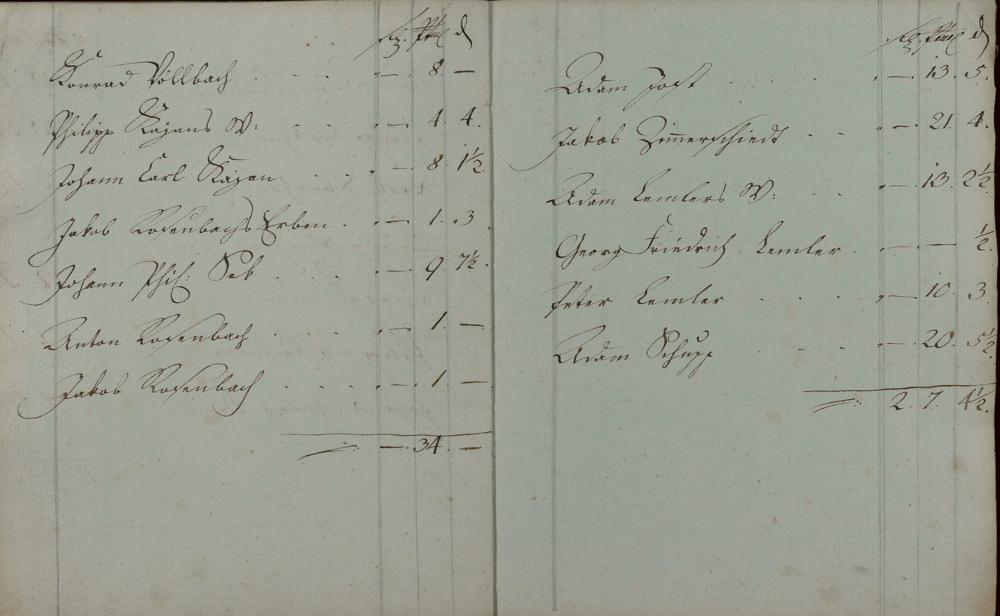 Konrad Vollbach . . . — 8 —
Philipp Kazans W: . . — 4 4.
Johann Carl Kazan — 8 1½
Jakob Rosenbachs Erben . — 1. 3
Johann Phil: Seb . . . — 9 7½.
Anton Rosenbach . . . — 1. —
Jakob Rosenbach . . . — 1 —
— 34. —
Adam Jost . . . — 13. 5.
Jakob Zimerschiedt . . — 21 4.
Adam Lemlers W: . . — 13. 2½
Georg Friedrich Lemler . — — ½
Peter Lemler . . . — 10 3.
Adam Schupp . . . — 20. 5½
2. 7. 4½.